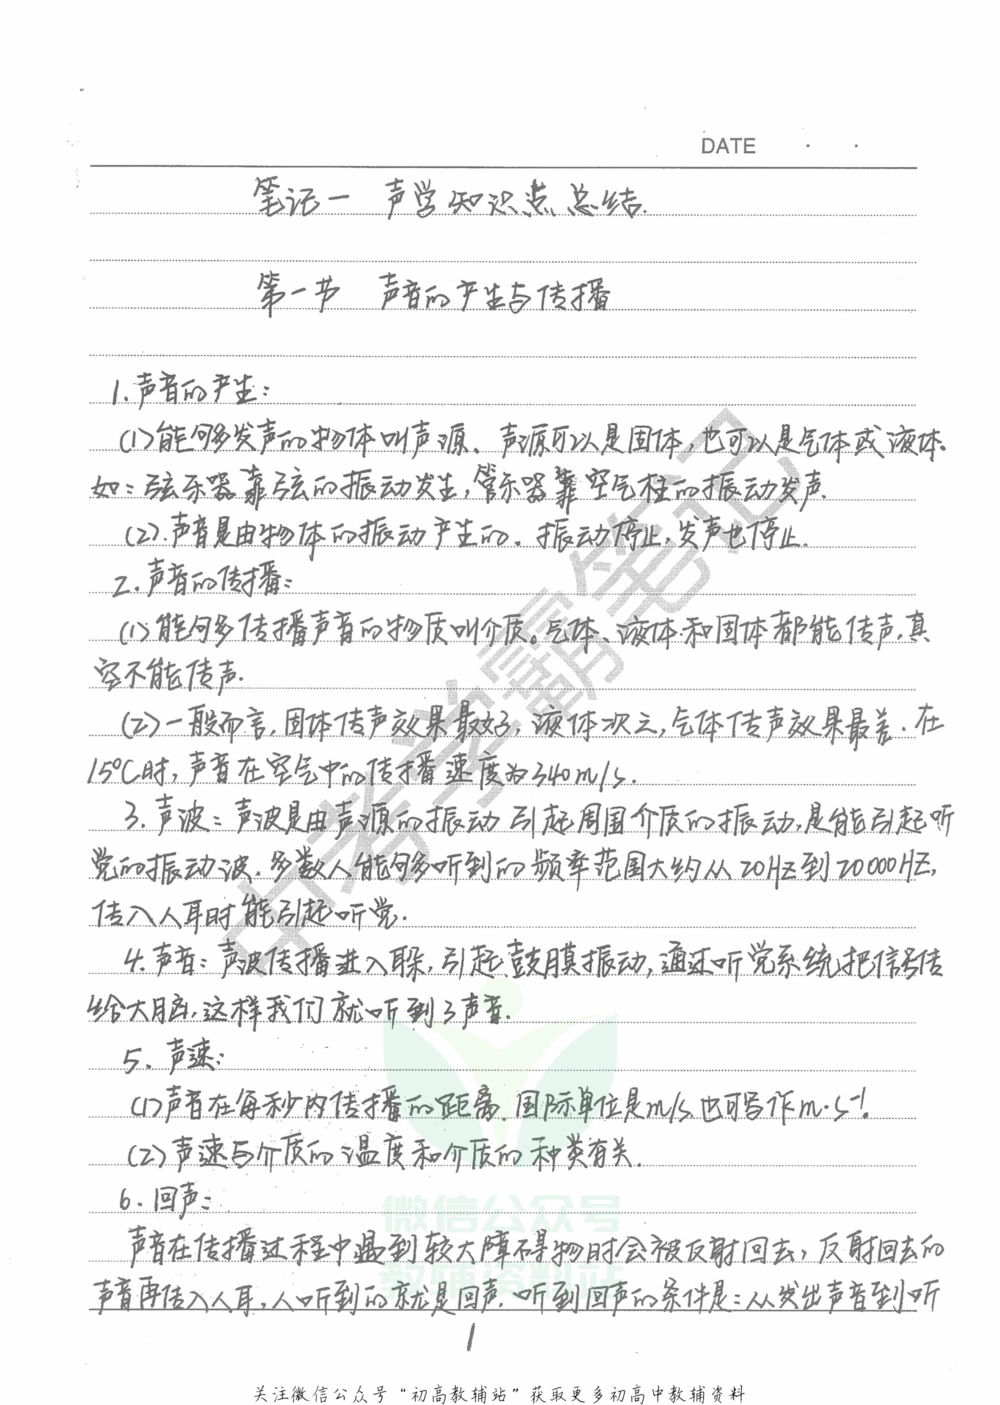 DATE · ·
笔记一 声学知识点总结.
第一节 声音的产生与传播
1.声音的产生:
(1)能够多发声的物体叫声源、声源可以是固体,也可以是气体或液体.
如:弦乐器靠弦的振动发生,管乐器靠空气柱的振动发声.
(2).声音是由物体的振动产生的。振动停止,发声也停止.
2.声音的传播:
(1)能够传播声音的物质叫介质。气体、液体和固体都能传声,真
空不能传声.
(2)一般而言,固体传声效果最好,液体次之,气体传声效果最差.在
15℃时,声音在空气中的传播速度为340m/s.
3.声波:声波是由声源的振动引起周围介质的振动,是能引起听
觉的振动波.多数人能够听到的频率范围大约从20Hz到20000Hz,
传入人耳时能引起听觉.
4.声音:声波传播进入耳朵,引起鼓膜振动,通过听觉系统把信号传
给大脑,这样我们就听到了声音.
5.声速:
(1)声音在每秒内传播的距离.国际单位是m/s.也可写作m·s⁻¹.
(2)声速与介质的温度和介质的种类有关.
6.回声:
声音在传播过程中遇到较大障碍物时会被反射回去,反射回去的
声音再传入人耳,人听到的就是回声.听到回声的条件是:从发出声音到听
1
中考学霸笔记
微信公众号
教师资料站
关注微信公众号“初高教辅站”获取更多初高中教辅资料